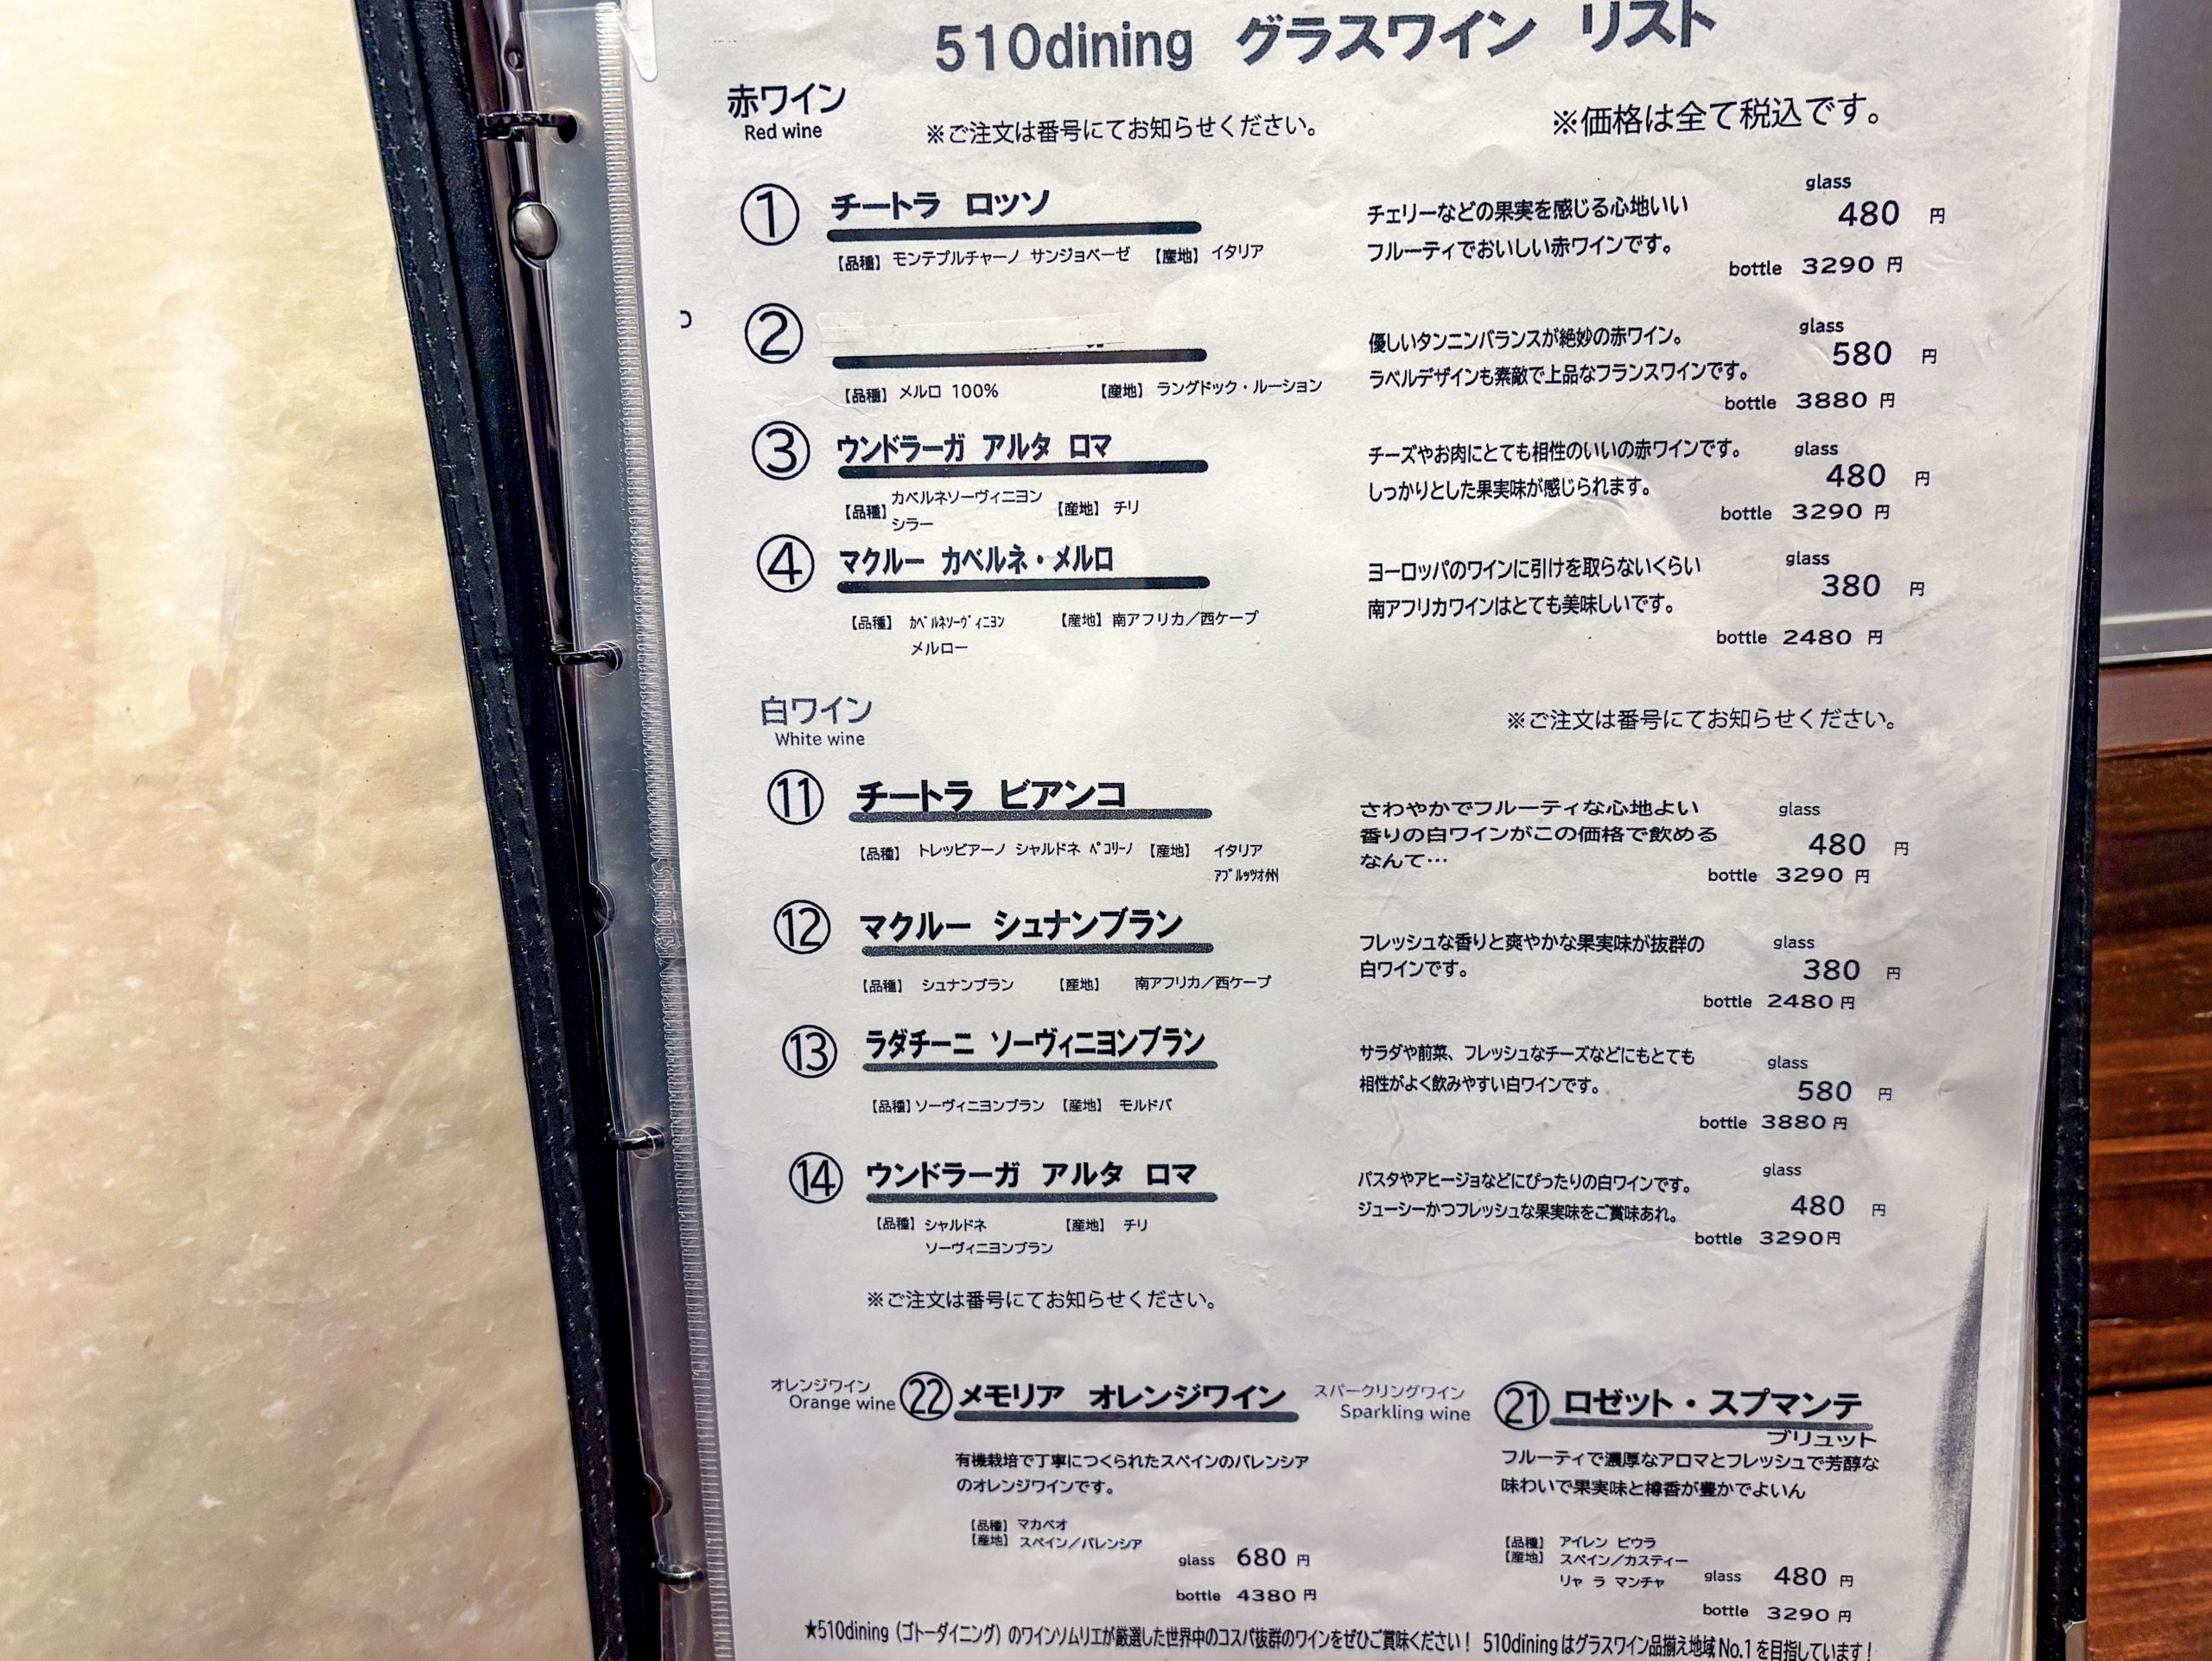 510dining グラスワイン リスト
赤ワイン
Red wine
※ご注文は番号にてお知らせください。
※価格は全て税込です。
① チートラ ロッソ
【品種】 モンテプルチャーノ サンジョベーゼ 【産地】 イタリア
チェリーなどの果実を感じる心地いい
フルーティでおいしい赤ワインです。
glass
480 円
bottle 3290 円
②
【品種】 メルロ 100% 【産地】 ラングドック・ルーション
優しいタンニンバランスが絶妙の赤ワイン。
ラベルデザインも素敵で上品なフランスワインです。
glass
580 円
bottle 3880 円
③ ウンドラーガ アルタ ロマ
【品種】 カベルネソーヴィニヨン 【産地】 チリ
シラー
チーズやお肉にとても相性のいいの赤ワインです。
しっかりとした果実味が感じられます。
glass
480 円
bottle 3290 円
④ マクルー カベルネ・メルロ
【品種】 ｶﾍﾞﾙﾈｿｰｳﾞｨﾆﾖﾝ 【産地】 南アフリカ／西ケープ
メルロー
ヨーロッパのワインに引けを取らないくらい
南アフリカワインはとても美味しいです。
glass
380 円
bottle 2480 円
白ワイン
White wine
※ご注文は番号にてお知らせください。
⑪ チートラ ビアンコ
【品種】 トレッビアーノ シャルドネ ﾍﾟｺﾘｰﾉ 【産地】 イタリア
ｱﾌﾞﾙｯﾂｵ州
さわやかでフルーティな心地よい
香りの白ワインがこの価格で飲める
なんて…
glass
480 円
bottle 3290 円
⑫ マクルー シュナンブラン
【品種】 シュナンブラン 【産地】 南アフリカ／西ケープ
フレッシュな香りと爽やかな果実味が抜群の
白ワインです。
glass
380 円
bottle 2480 円
⑬ ラダチーニ ソーヴィニヨンブラン
【品種】 ソーヴィニヨンブラン 【産地】 モルドバ
サラダや前菜、フレッシュなチーズなどにもとても
相性がよく飲みやすい白ワインです。
glass
580 円
bottle 3880 円
⑭ ウンドラーガ アルタ ロマ
【品種】 シャルドネ 【産地】 チリ
ソーヴィニヨンブラン
パスタやアヒージョなどにぴったりの白ワインです。
ジューシーかつフレッシュな果実味をご賞味あれ。
glass
480 円
bottle 3290円
※ご注文は番号にてお知らせください。
オレンジワイン
Orange wine
㉒ メモリア オレンジワイン
有機栽培で丁寧につくられたスペインのバレンシア
のオレンジワインです。
【品種】 マカベオ
【産地】 スペイン／バレンシア
glass 680 円
bottle 4380 円
スパークリングワイン
Sparkling wine
㉑ ロゼット・スプマンテ
ブリュット
フルーティで濃厚なアロマとフレッシュで芳醇な
味わいで果実味と樽香が豊かでよいん
【品種】 アイレン ビウラ
【産地】 スペイン／カスティー
リャ ラ マンチャ
glass 480 円
bottle 3290 円
★510dining（ゴトーダイニング）のワインソムリエが厳選した世界中のコスパ抜群のワインをぜひご賞味ください！ 510diningはグラスワイン品揃え地域No.1を目指しています！